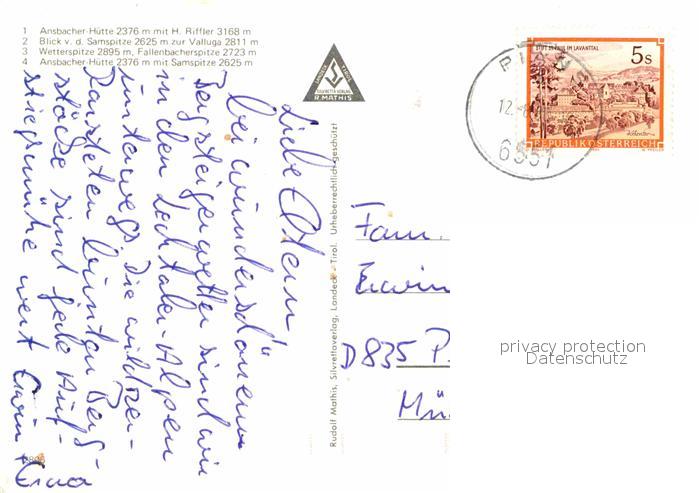 1 Ansbacher-Hütte 2376 m mit H. Riffler 3168 m
2 Blick v. d. Samspitze 2625 m zur Valluga 2811 m
3 Wetterspitze 2895 m, Fallenbacherspitze 2723 m
4 Ansbacher-Hütte 2376 m mit Samspitze 2625 m
R. MATHIS
STIFT ST. PAUL IM LAVANTTAL
5 S
REPUBLIK ÖSTERREICH
12.
6551
Liebe Eltern
bei wunderschönem
Bergsteigerwetter sind wir
in den Lechtaler-Alpen
unterwegs. Die
bunten Berg-
stöcke sind jede Auf-
stiegsmühe wert Erwin
Rudolf Mathis, Silvrettaverlag, Landeck - Tirol. Urheberrechtlich geschützt
Fam.
Erwin
D 835 P.
Mü
privacy protection
Datenschutz